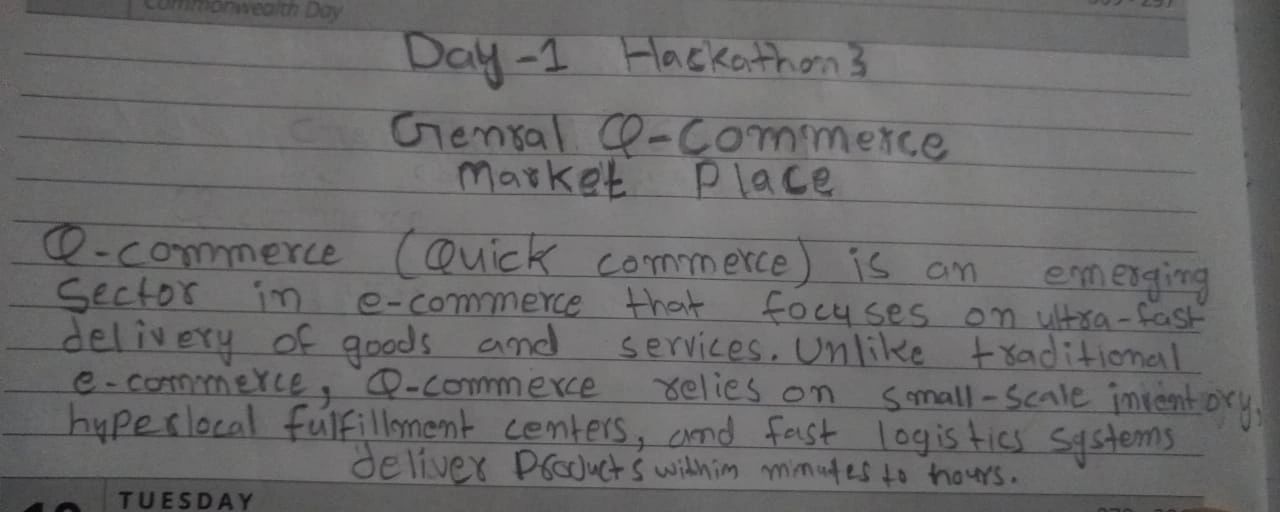 Commonwealth Day
Day-1 Hackathon 3
Genral Q-Commerce
Market Place
Q-commerce (Quick commerce) is an emerging
Sector in e-commerce that focuses on ultra-fast
delivery of goods and services. Unlike traditional
e-commerce, Q-commerce relies on small-scale inventory,
hyperlocal fulfillment centers, and fast logistics systems
deliver Products within minutes to hours.
TUESDAY